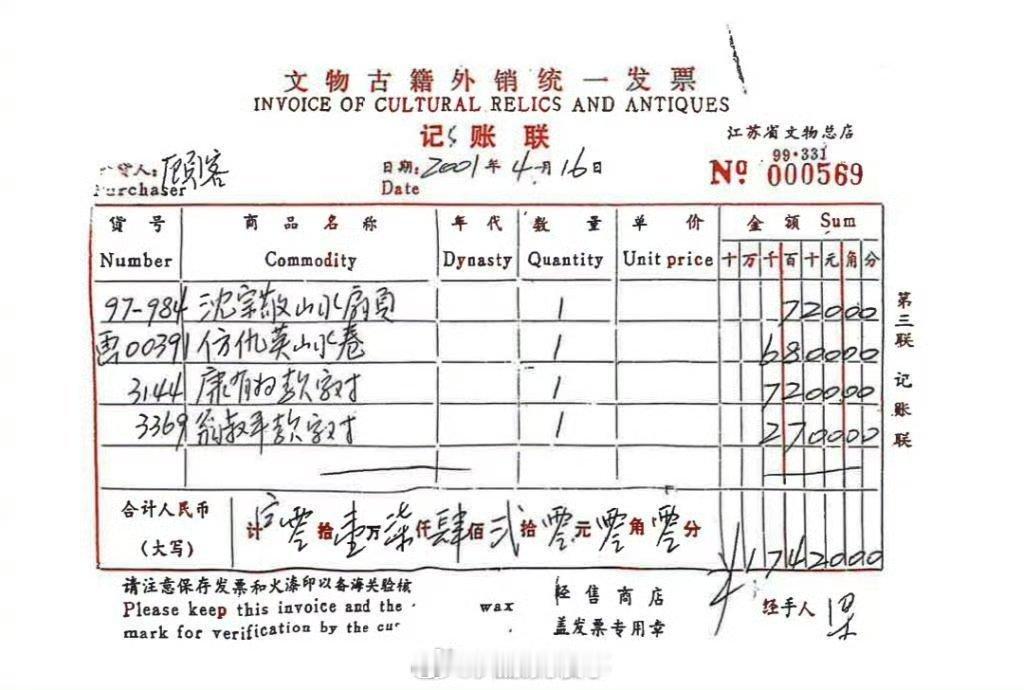 文物古籍外销统一发票
INVOICE OF CULTURAL RELICS AND ANTIQUES
记账联
江苏省文物总店
99·331
货人:顾客
Purchaser
日期:2001年4月16日
Date
Nº 000569
货号 商品名称 年代 数量 单价 金额 Sum
Number Commodity Dynasty Quantity Unit price 十万千百十元角分
97-984 沈宗敬山水扇页 1 72000
00391 仿仇英山水卷 1 680000
3144 康有为款字对 1 720000
3369 翁叔平款字对 1 270000
第三联 记账联
合计人民币
(大写)
计 零拾壹万柒仟肆佰贰拾零元零角零分
¥1742000
请注意保存发票和火漆印以备海关验核
Please keep this invoice and the wax
mark for verification by the cus
经售商店
盖发票专用章
经手人